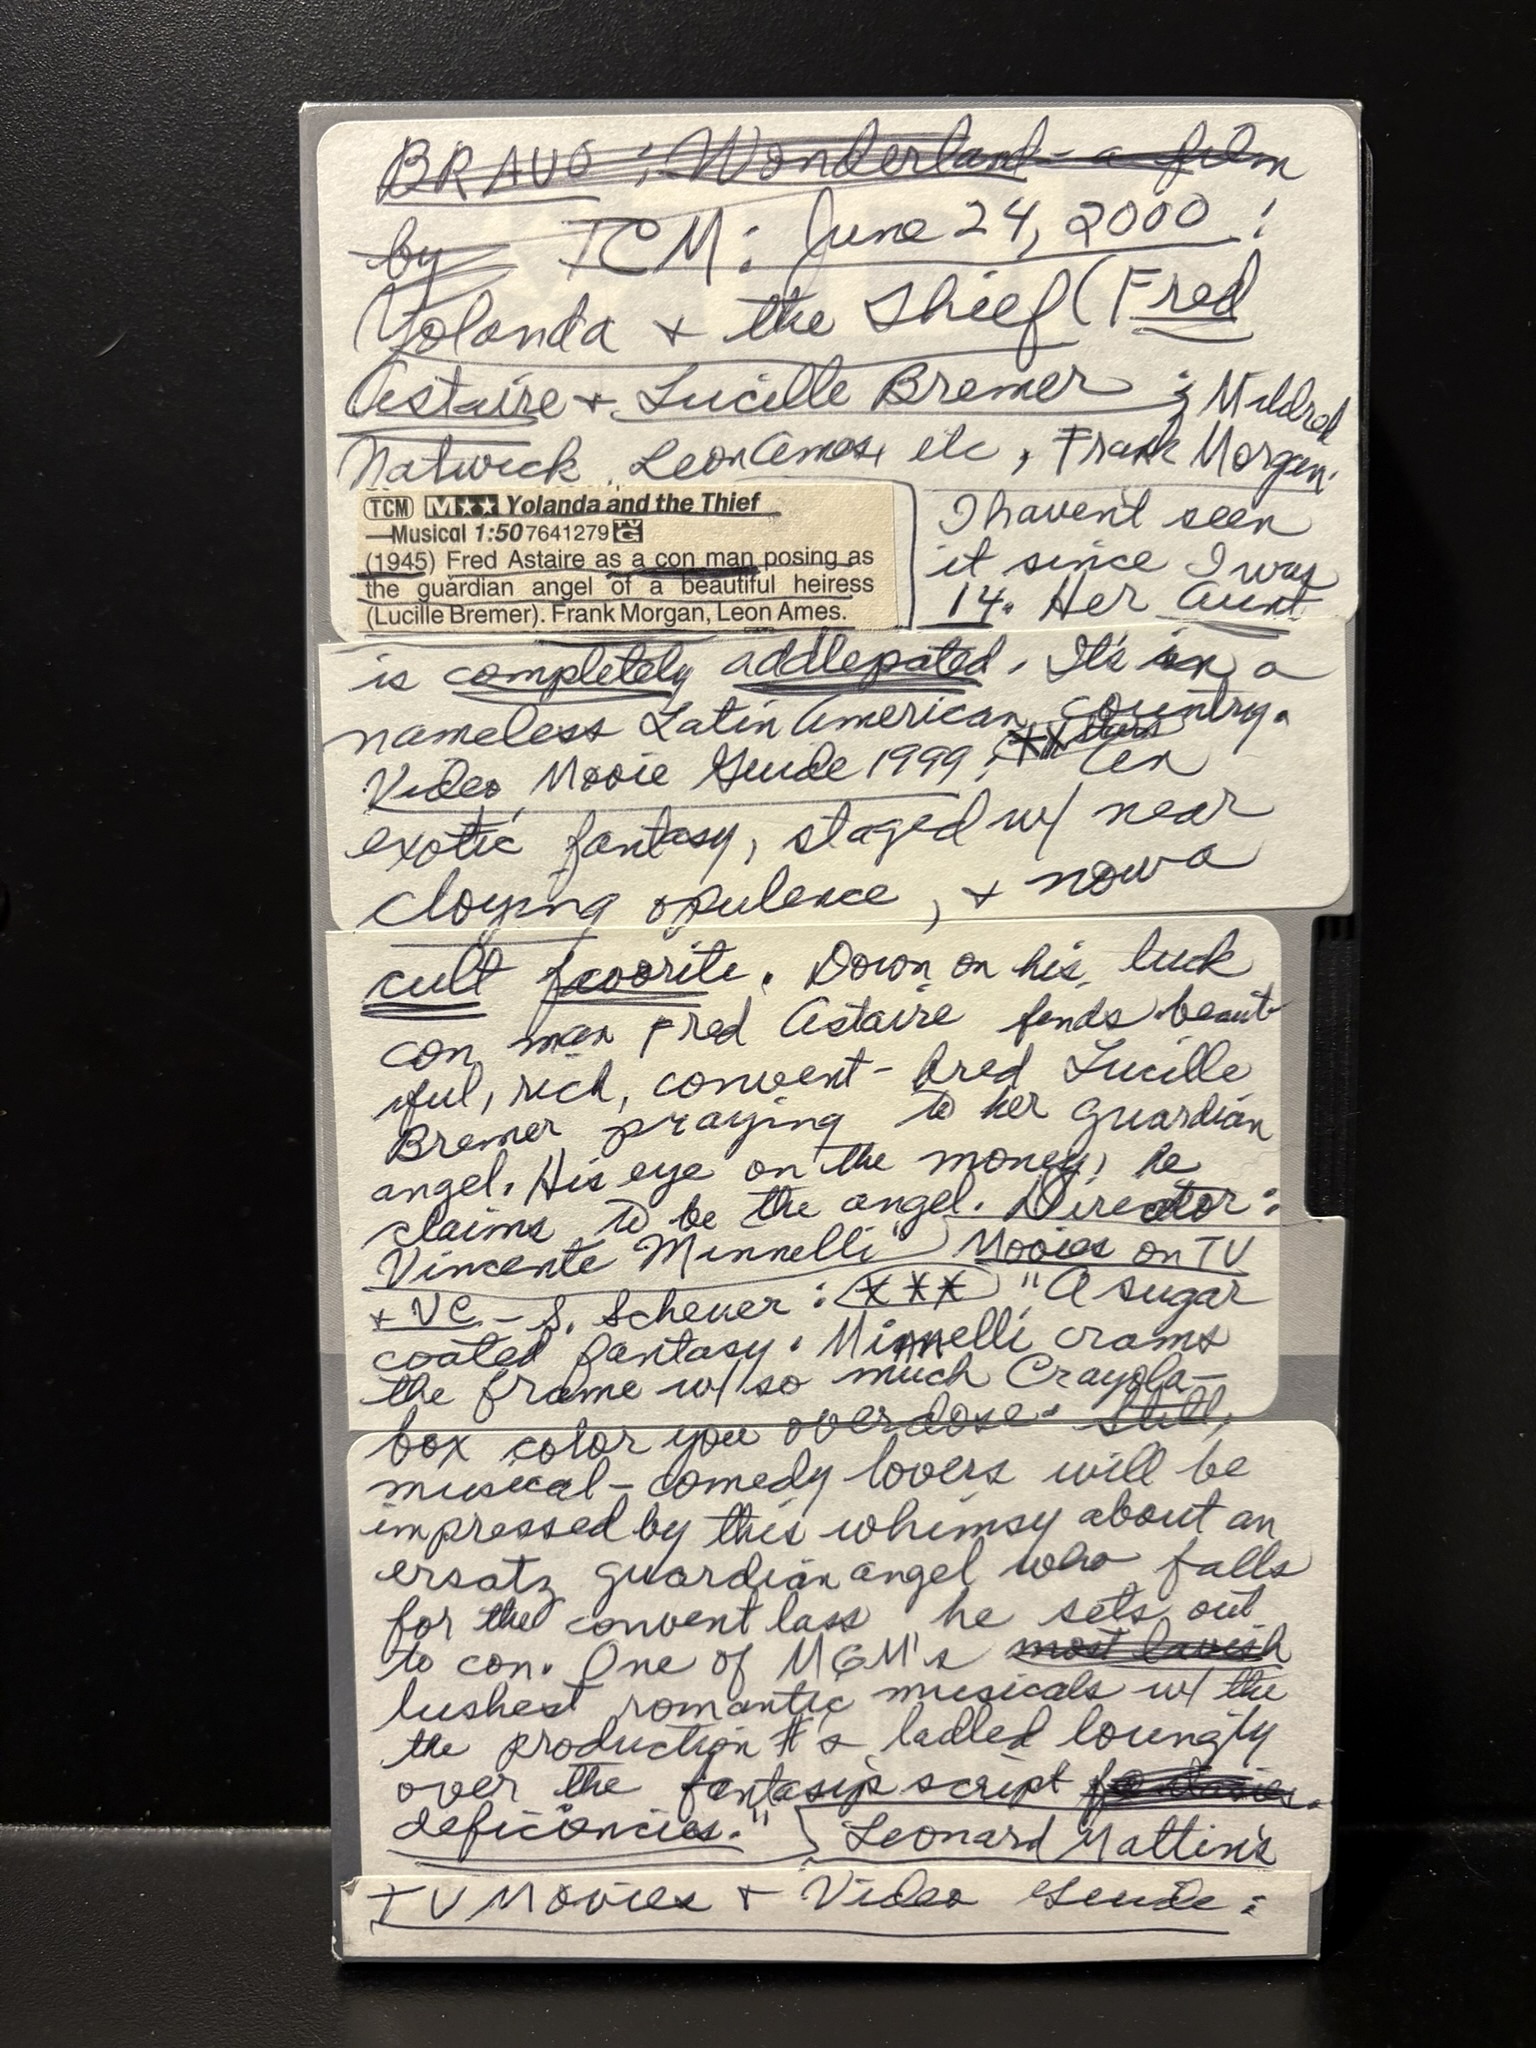 BRAVO: Wonderland - a film
by TCM: June 24, 2000:
Yolanda + the Thief (Fred
Astaire + Lucille Bremer; Mildred
Natwick, Leon Ames, etc, Frank Morgan.
TCM M★★ Yolanda and the Thief
—Musical 1:50 7641279 TV G
(1945) Fred Astaire as a con man posing as
the guardian angel of a beautiful heiress
(Lucille Bremer). Frank Morgan, Leon Ames.
I haven't seen
it since I was
14. Her Aunt
is completely addlepated. It's in a
nameless Latin American country.
Video Movie Guide 1999: ** stars An
exotic fantasy, staged w/ near
cloying opulence, + now a
cult favorite. Down on his luck
con man Fred Astaire finds beaut-
iful, rich, convent-bred Lucille
Bremer praying to her guardian
angel. His eye on the money, he
claims to be the angel. Director:
Vincente Minnelli" Movies on TV
+ VC - S. Scheuer: *** "A sugar
coated fantasy. Minnelli crams
the frame w/ so much Crayola-
box color you overdose. Still,
musical-comedy lovers will be
impressed by this whimsy about an
ersatz guardian angel who falls
for the convent lass he sets out
to con. One of MGM's most lavish
lushest romantic musicals w/ the
the production #'s ladled loungly
over the fantasy's script
deficiencies." Leonard Maltin's
TV Movies + Video Guide: